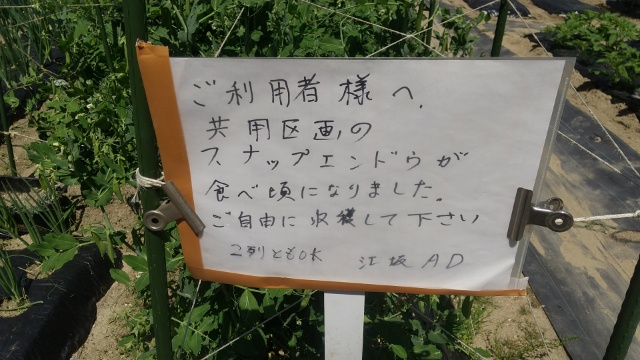 ご利用者様へ、
共用区画の
スナップエンドウが
食べ頃になりました。
ご自由に収穫して下さい
2列ともOK 江坂AD